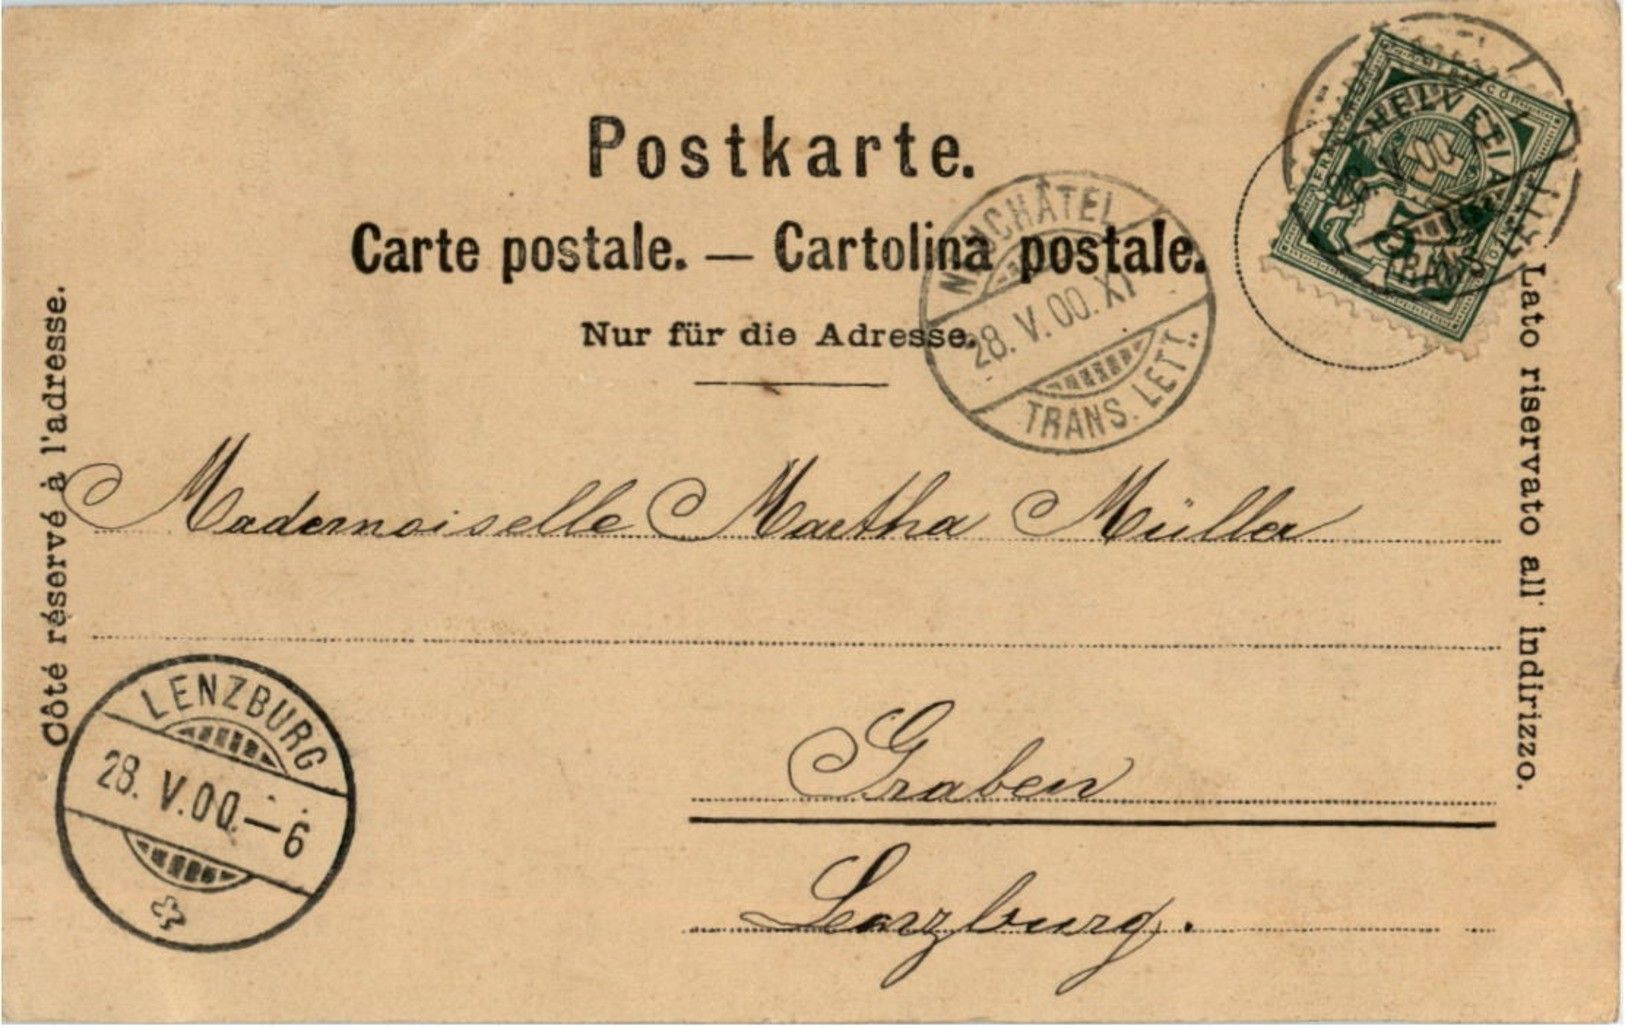 Postkarte.
Carte postale. — Cartolina postale.
Nur für die Adresse.
Côté réservé à l'adresse.
Lato riservato all' indirizzo.
HELVETIA
5
NEUCHÂTEL
28. V. 00. XI
TRANS. LETT.
Mademoiselle Martha Müller
Graben
Lenzburg.
LENZBURG
28. V. 00. — 6